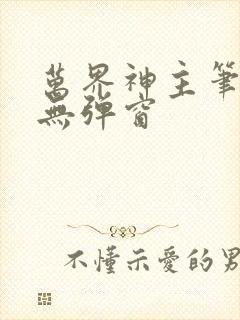 萬界神主筆
無彈窗
不懂示愛的男